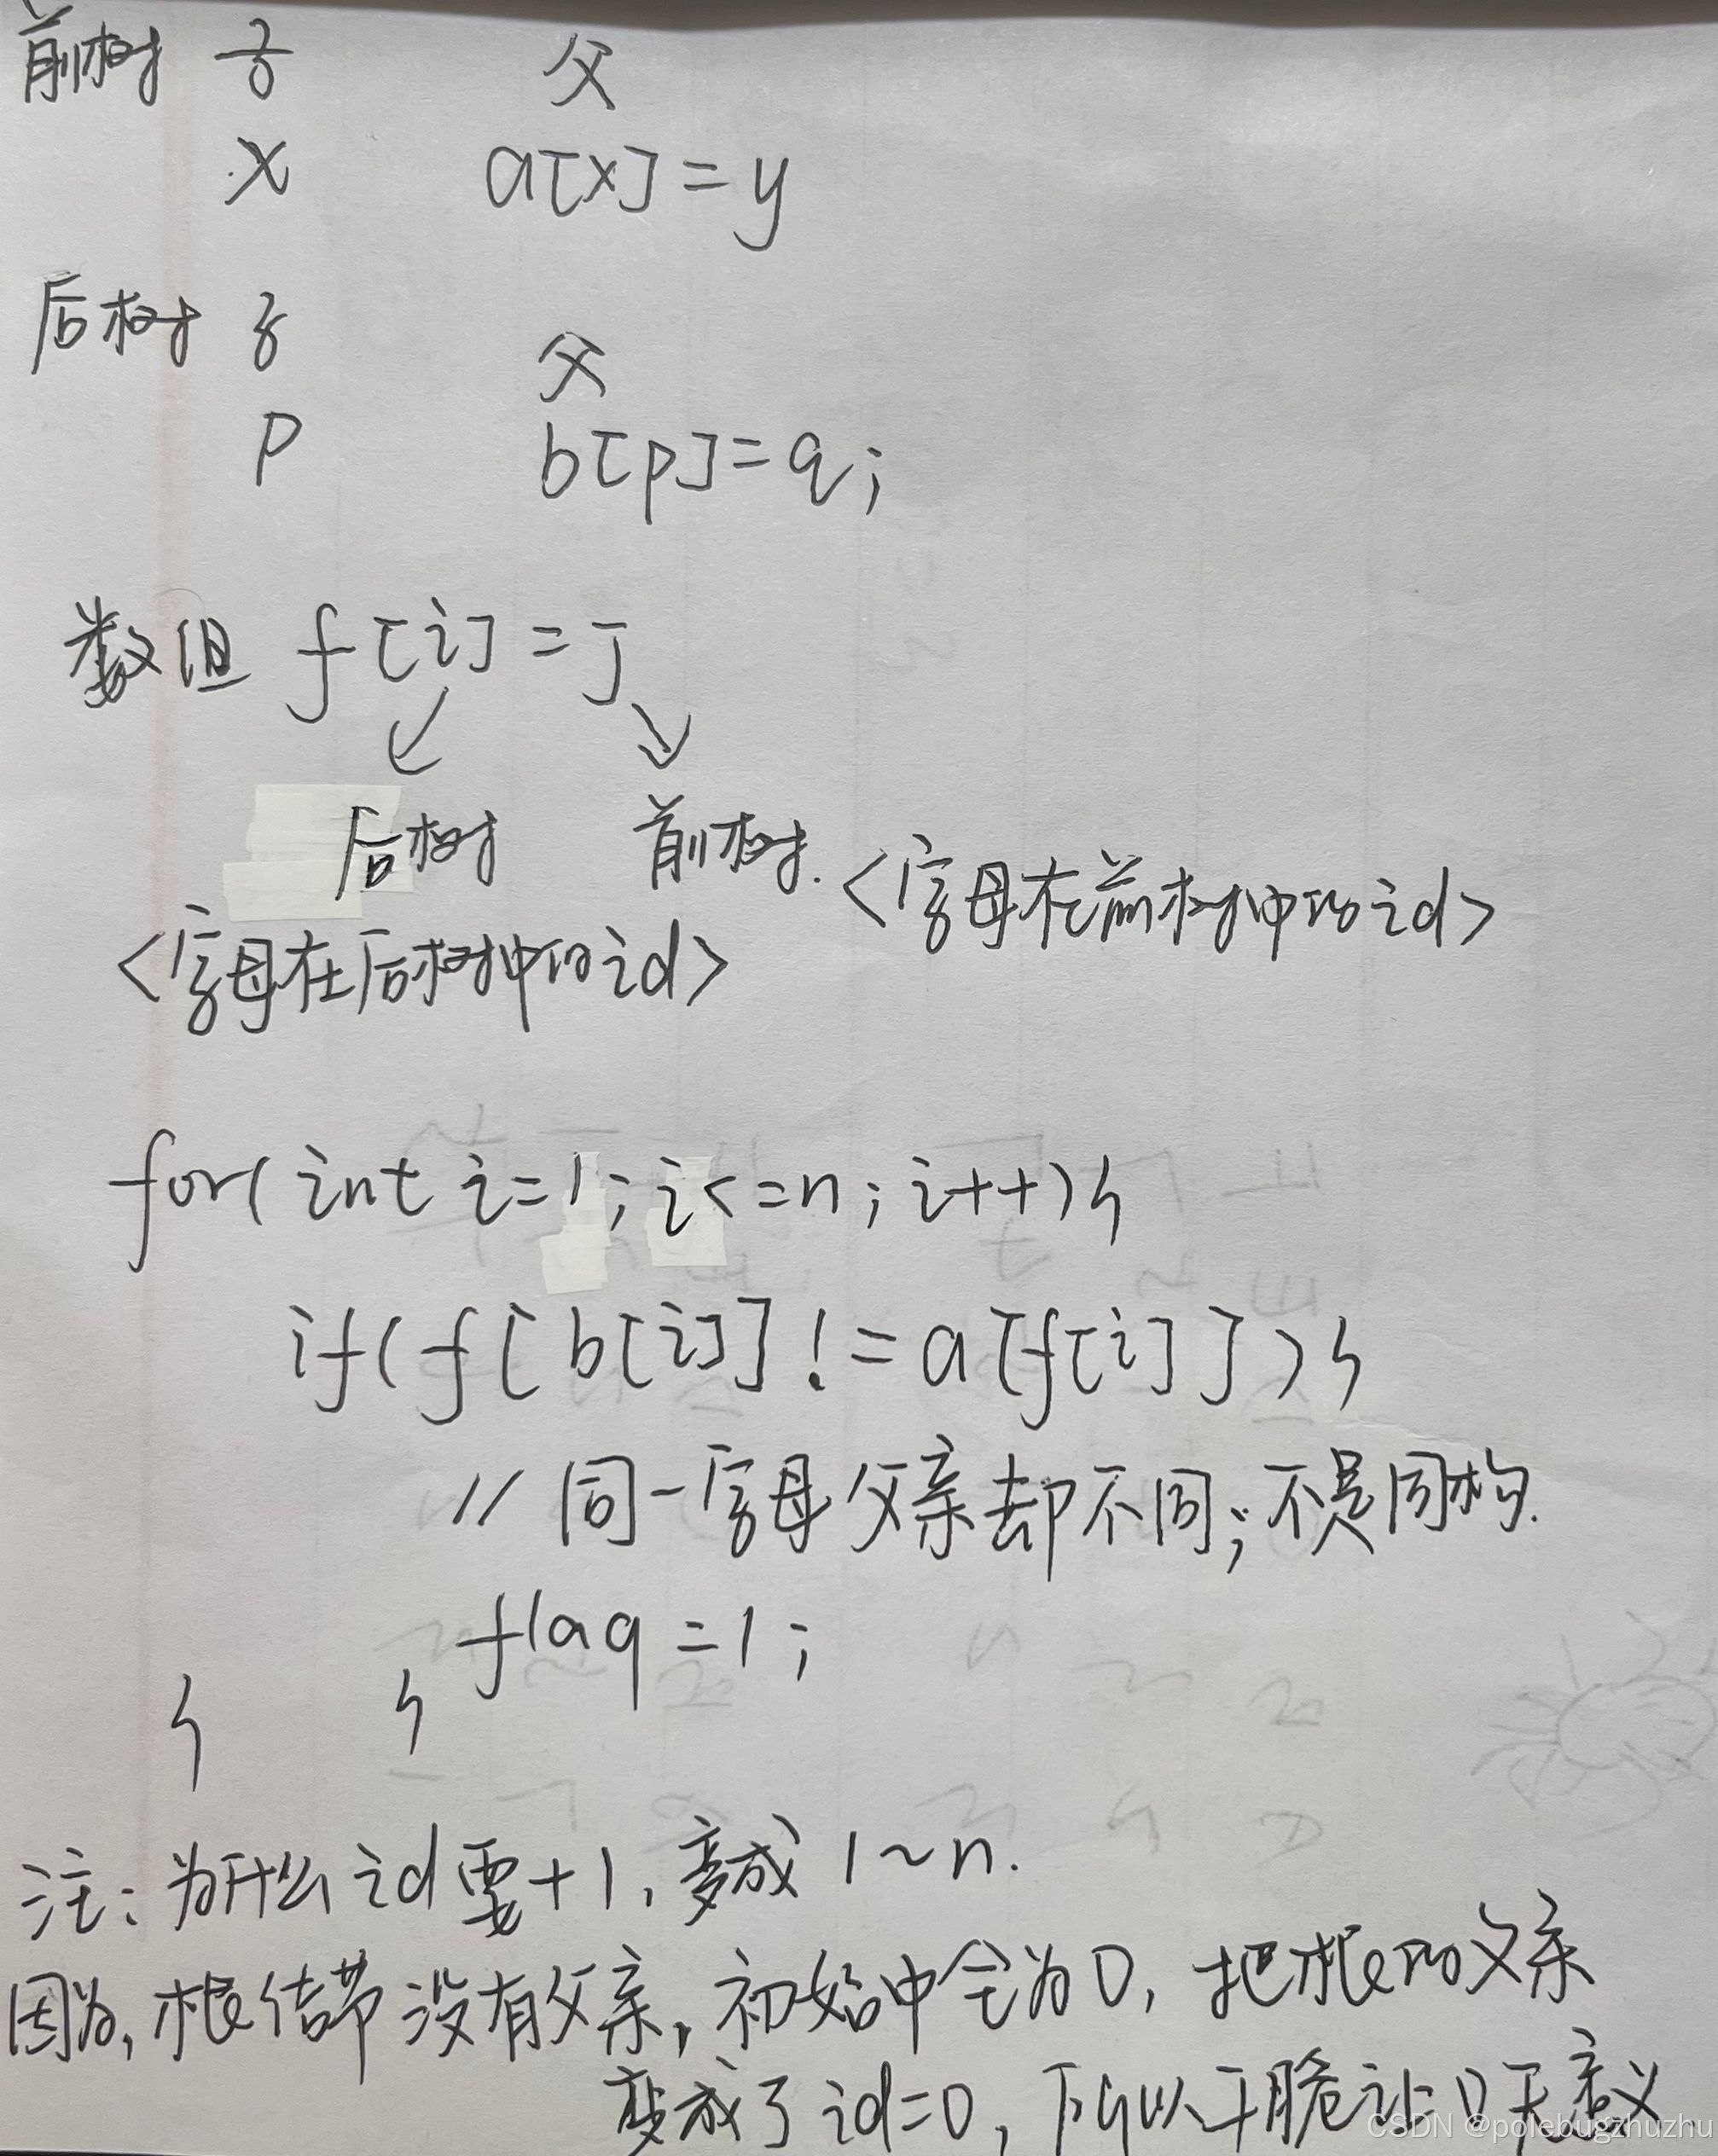 前树 子 父
x a[x]=y
后树 子 父
p b[p]=q;
数组 f[i]=j
后树 前树.
<字母在前树中的id>
<字母在后树中的id>
for(int i=1;i<=n;i++){
if(f[b[i]]!=a[f[i]]){
//同一字母父亲却不同;不是同构.
flag=1;
} }
注:为什么id要+1,变成1~n.
因为,根结节没有父亲,初始中全为0,把根的父亲
变成了id=0,所以干脆让0无意义
CSDN @polebugzhuzhu